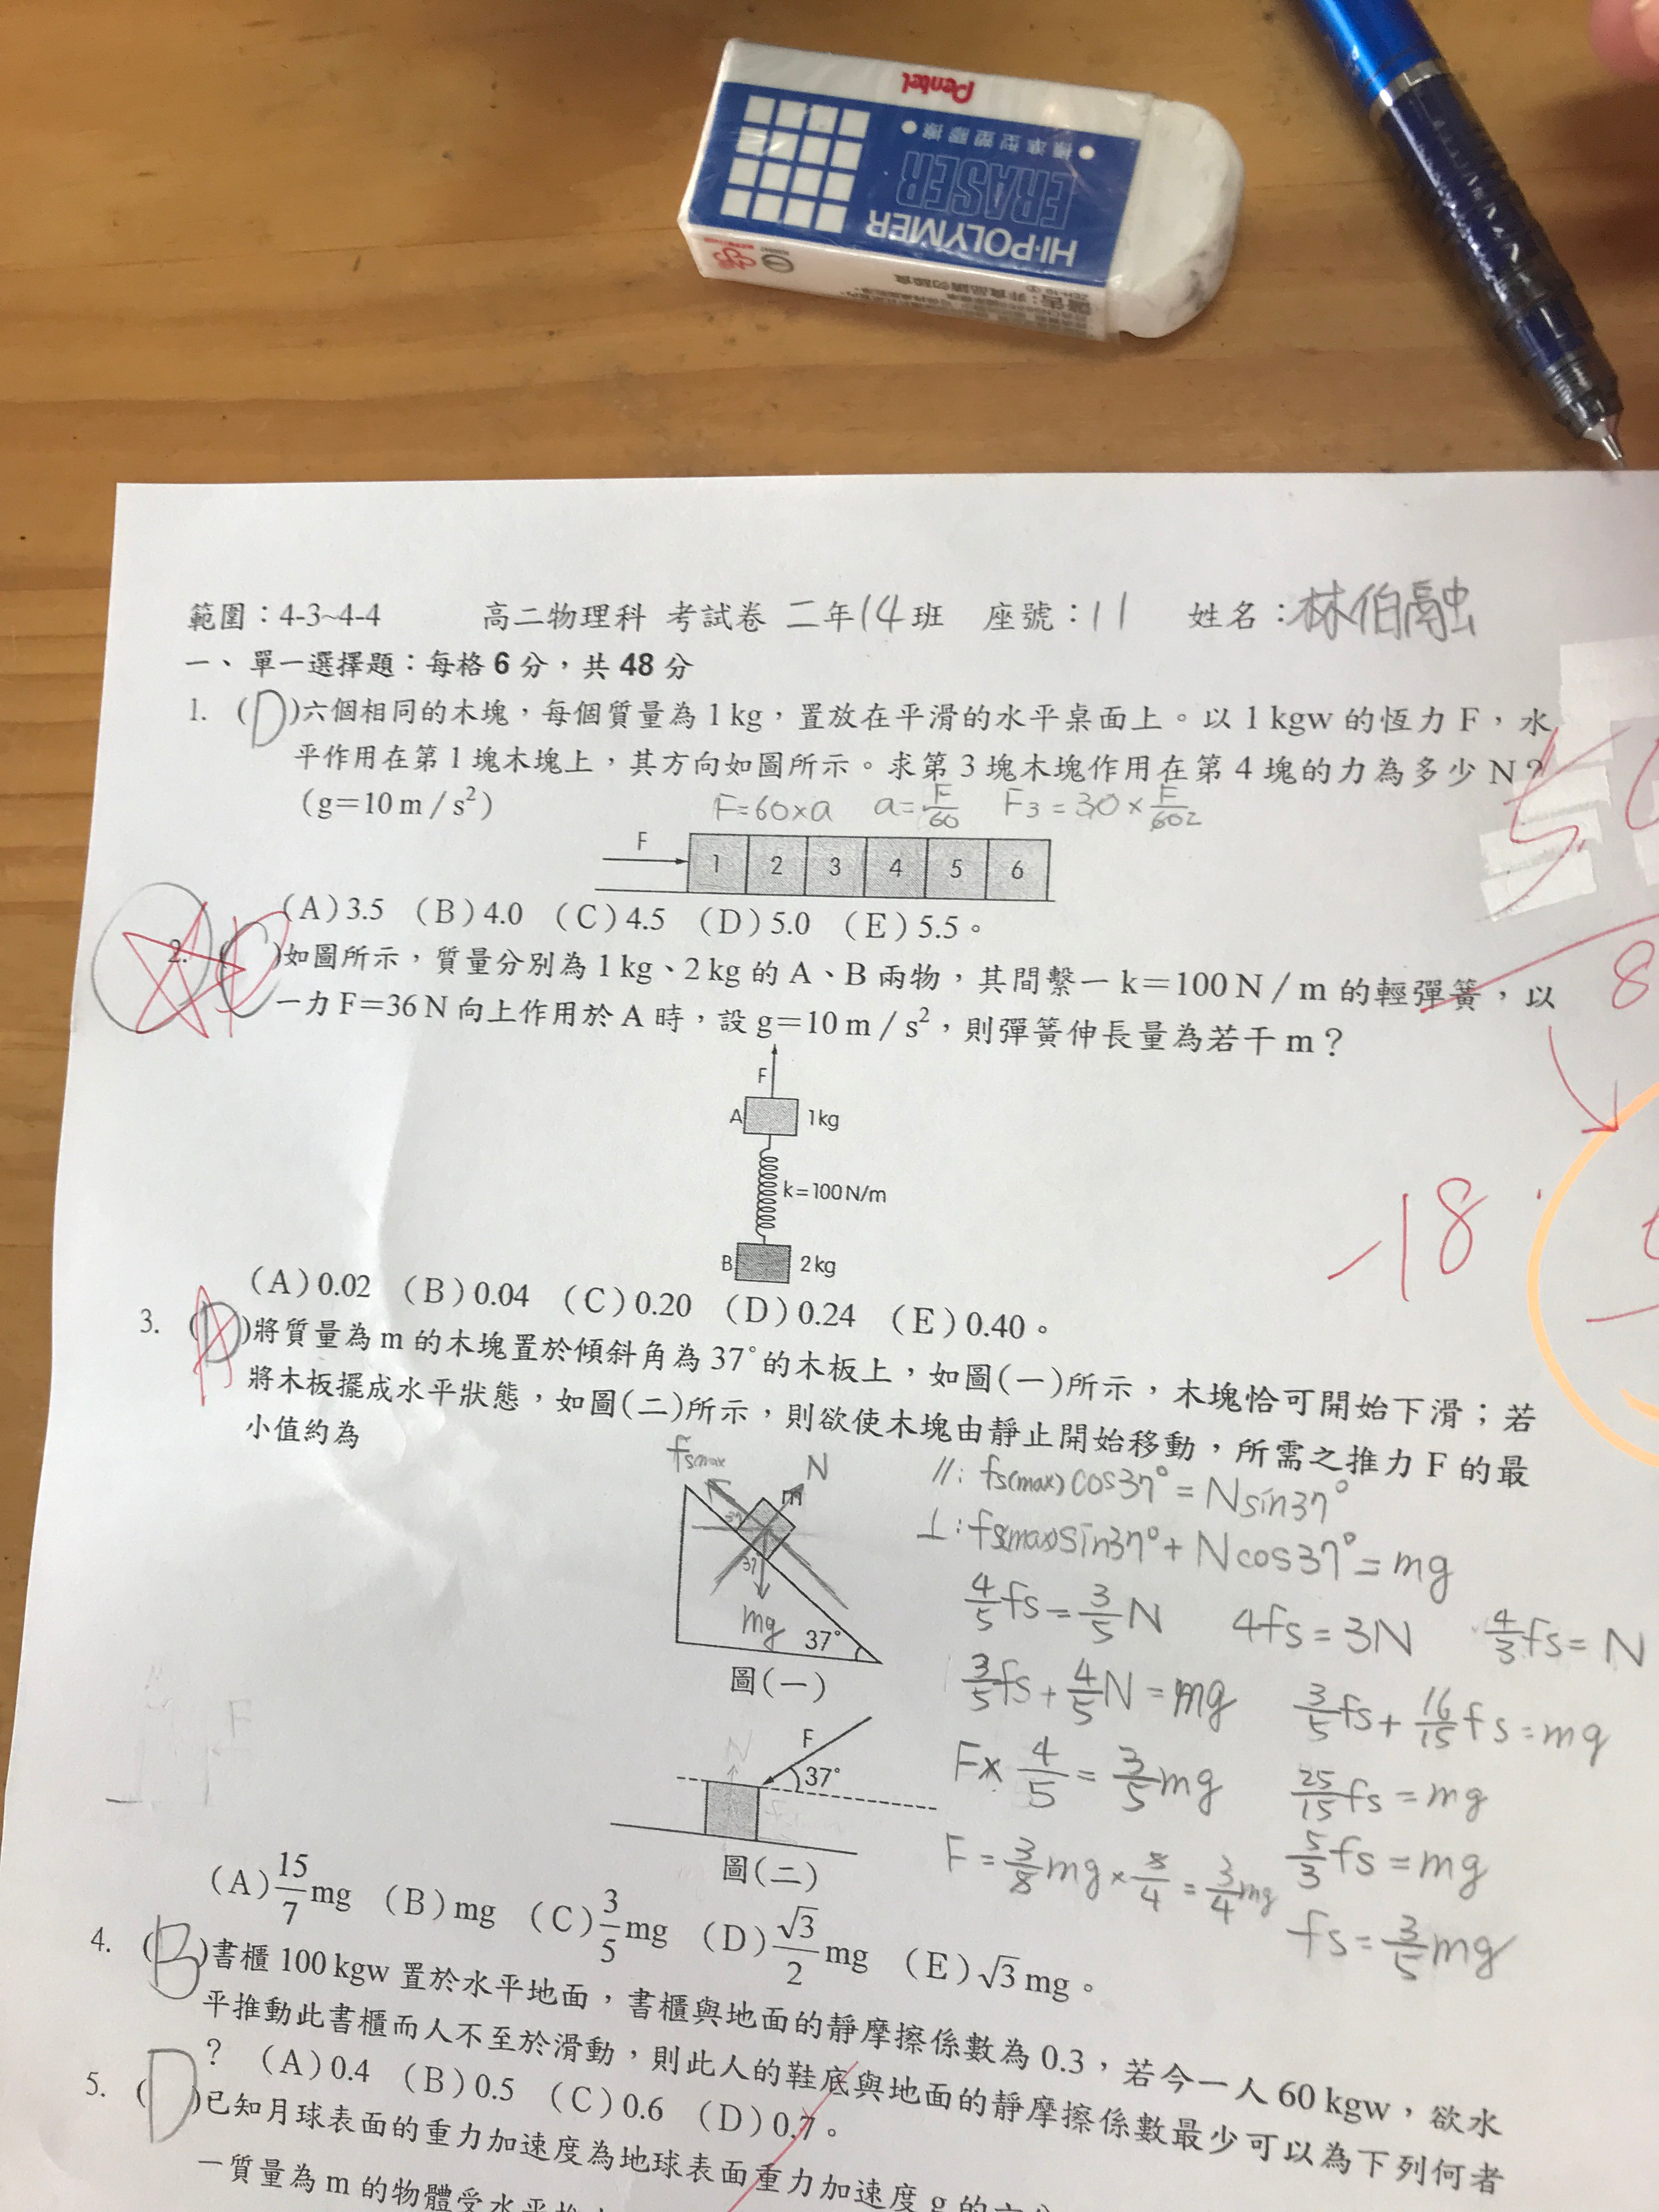 Pentel
標準型塑膠擦
ERASER
HI-POLYMER
範圍：4-3~4-4 高二物理科 考試卷 二年14班 座號：11 姓名：林伯融
一、單一選擇題：每格 6 分，共 48 分
1. (D)六個相同的木塊，每個質量為 1 kg，置放在平滑的水平桌面上。以 1 kgw 的恆力 F，水
平作用在第 1 塊木塊上，其方向如圖所示。求第 3 塊木塊作用在第 4 塊的力為多少 N？
(g＝10 m / s²) F=60×a a=F/60 F3=30×F/602
F
1 2 3 4 5 6
(A) 3.5 (B) 4.0 (C) 4.5 (D) 5.0 (E) 5.5。
2. (C)如圖所示，質量分別為 1 kg、2 kg 的 A、B 兩物，其間繫一 k＝100 N / m 的輕彈簧，以
8
一力 F＝36 N 向上作用於 A 時，設 g＝10 m / s²，則彈簧伸長量為若干 m？
F
A 1kg
k=100N/m
-18
B 2kg
(A) 0.02 (B) 0.04 (C) 0.20 (D) 0.24 (E) 0.40。
3. (D)將質量為 m 的木塊置於傾斜角為 37°的木板上，如圖(一)所示，木塊恰可開始下滑；若
A
將木板擺成水平狀態，如圖(二)所示，則欲使木塊由靜止開始移動，所需之推力 F 的最
小值約為
fsmax N
m
37
37
mg 37°
圖(一)
//: fs(max)cos37°=Nsin37°
⊥: fs(max)sin37°+Ncos37°=mg
4/5fs=3/5N 4fs=3N 4/3fs=N
3/5fs+4/5N=mg 3/5fs+16/15fs=mg
F×4/5=3/5mg 25/15fs=mg
F=3/8mg×5/4=3/4mg 5/3fs=mg
fs=3/5mg
N F
37°
圖(二)
F
(A) 15/7 mg (B) mg (C) 3/5 mg (D) √3/2 mg (E) √3 mg。
4. (B)書櫃 100 kgw 置於水平地面，書櫃與地面的靜摩擦係數為 0.3，若今一人 60 kgw，欲水
平推動此書櫃而人不至於滑動，則此人的鞋底與地面的靜摩擦係數最少可以為下列何者
？ (A) 0.4 (B) 0.5 (C) 0.6 (D) 0.7。
5. (D)已知月球表面的重力加速度為地球表面重力加速度 g 的六分
一質量為 m 的物體受水平推